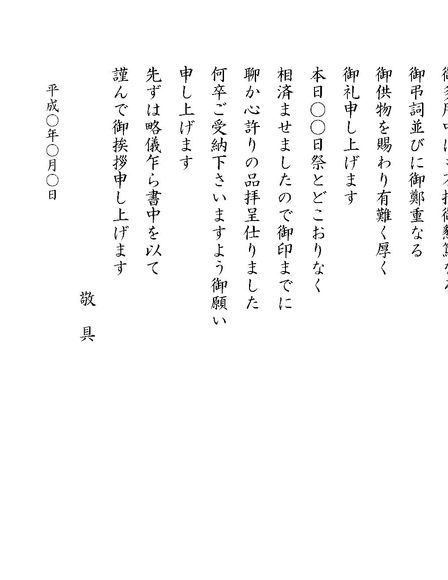 御弔詞並びに御鄭重なる
御供物を賜わり有難く厚く
御礼申し上げます
本日〇〇日祭とどこおりなく
相済ませましたので御印までに
聊か心許りの品拝呈仕りました
何卒ご受納下さいますよう御願い
申し上げます
先ずは略儀乍ら書中を以て
謹んで御挨拶申し上げます
敬具
平成〇年〇月〇日